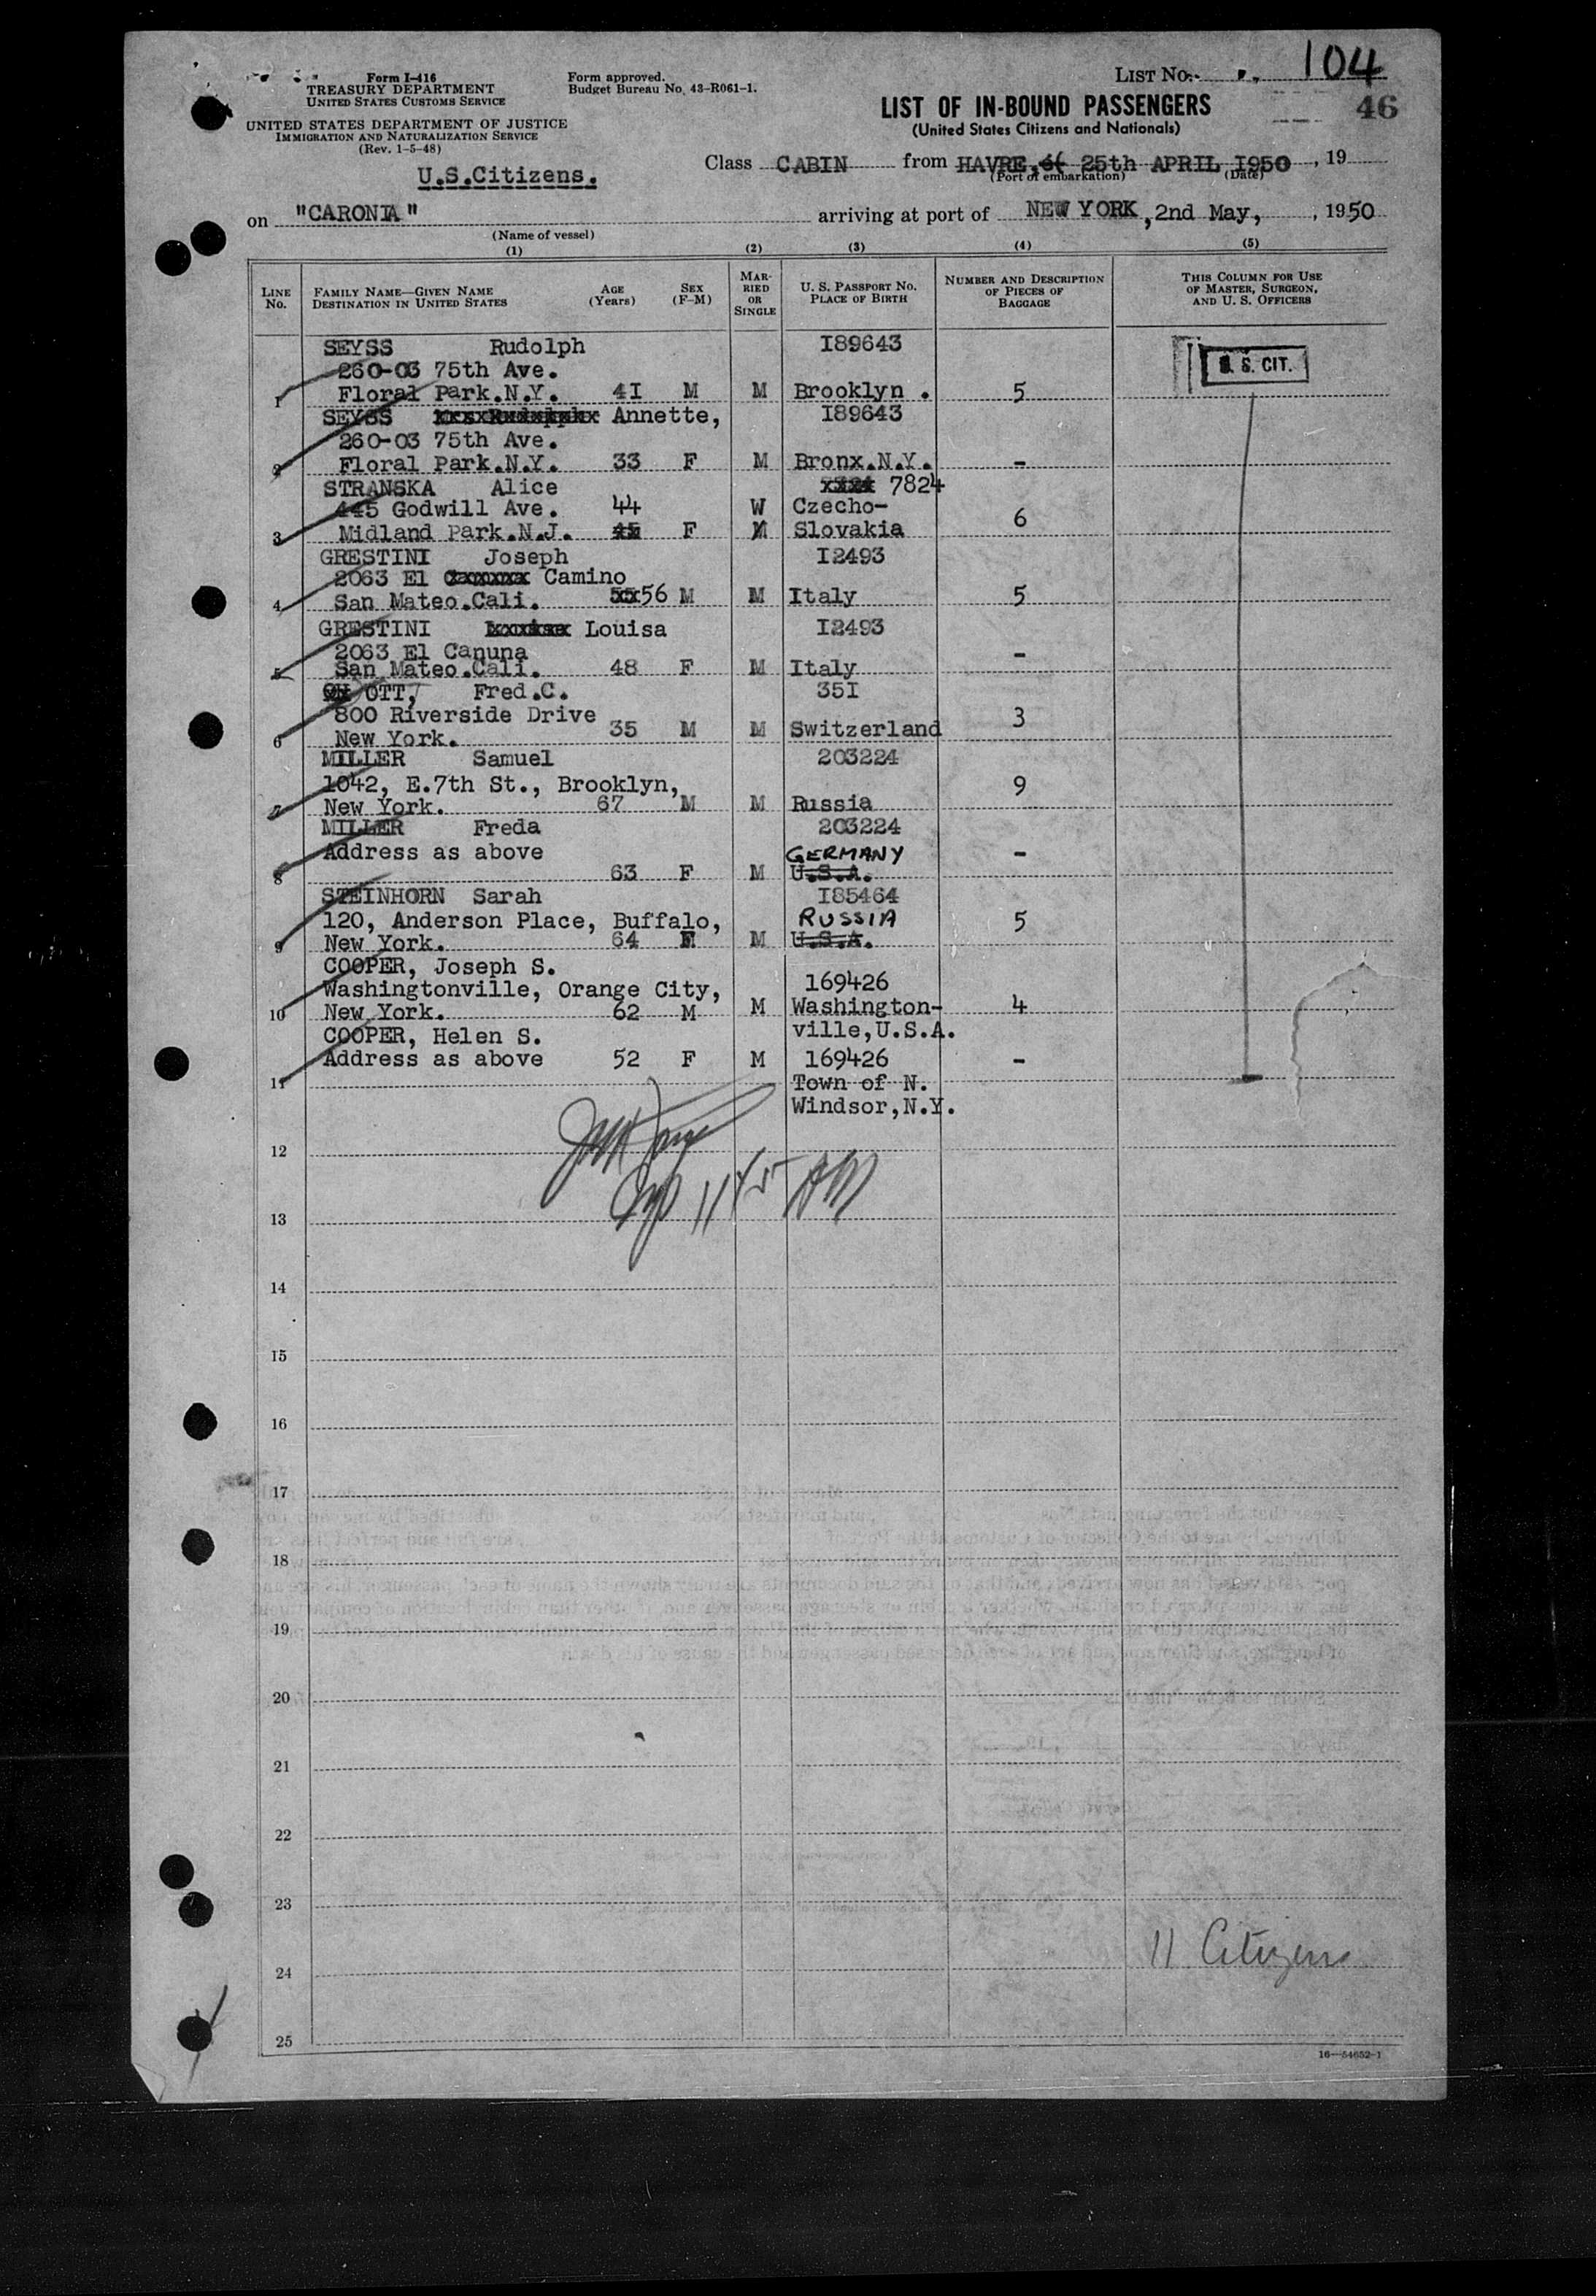 Form I-416
TREASURY DEPARTMENT
UNITED STATES CUSTOMS SERVICE
UNITED STATES DEPARTMENT OF JUSTICE
IMMIGRATION AND NATURALIZATION SERVICE
(Rev. 1-5-48)
Form approved.
Budget Bureau No. 43-R061-1.
LIST NO. 104
46
LIST OF IN-BOUND PASSENGERS
(United States Citizens and Nationals)
U.S.Citizens.
Class CABIN from HAVRE, 25th APRIL I950, 19
(Port of embarkation) (Date)
on "CARONIA" arriving at port of NEW YORK, 2nd May, , 1950
(Name of vessel)
(1) (2) (3) (4) (5)
LINE No. FAMILY NAME—GIVEN NAME DESTINATION IN UNITED STATES AGE (Years) SEX (F-M) MARRIED OR SINGLE U. S. PASSPORT NO. PLACE OF BIRTH NUMBER AND DESCRIPTION OF PIECES OF BAGGAGE THIS COLUMN FOR USE OF MASTER, SURGEON, AND U. S. OFFICERS
SEYSS Rudolph I89643
260-03 75th Ave. U. S. CIT.
1 Floral Park.N.Y. 4I M M Brooklyn . 5
SEYSS Annette, I89643
260-03 75th Ave.
2 Floral Park.N.Y. 33 F M Bronx.N.Y. -
STRANSKA Alice 7824
445 Godwill Ave. 44 W Czecho-
3 Midland Park.N.J. 45 F M Slovakia 6
GRESTINI Joseph I2493
2063 El Camino
4 San Mateo.Cali. 56 M M Italy 5
GRESTINI Louisa I2493
2063 El Canuna
5 San Mateo.Cali. 48 F M Italy -
OTT, Fred.C. 35I
800 Riverside Drive
6 New York. 35 M M Switzerland 3
MILLER Samuel 203224
1042, E.7th St., Brooklyn,
7 New York. 67 M M Russia 9
MILLER Freda 203224
Address as above GERMANY
8 63 F M U.S.A. -
STEINHORN Sarah I85464
120, Anderson Place, Buffalo, RUSSIA
9 New York. 64 F M U.S.A. 5
COOPER, Joseph S.
Washingtonville, Orange City, 169426
10 New York. 62 M M Washington- 4
ville,U.S.A.
COOPER, Helen S.
Address as above 52 F M 169426 -
11 Town of N.
Windsor,N.Y.
12
11 45 AM
13
14
15
16
17
18
19
20
21
22
23
11 Citizens
24
25
16—54652-1